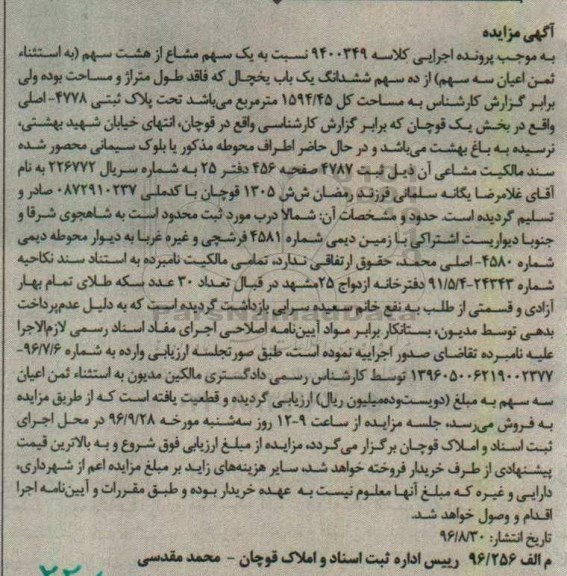 آگهی مزایده
به موجب پرونده اجرایی کلاسه ۹۴۰۰۳۴۹ نسبت به یک سهم مشاع از هشت سهم (به استثناء
ثمن اعیان سه سهم) از ده سهم ششدانگ یک باب یخچال که فاقد طول متراژ و مساحت بوده ولی
برابر گزارش کارشناس به مساحت کل ۱۵۹۴/۴۵ مترمربع می‌باشد تحت پلاک ثبتی ۴۷۷۸- اصلی
واقع در بخش یک قوچان که برابر گزارش کارشناسی واقع در قوچان، انتهای خیابان شهید بهشتی،
نرسیده به باغ بهشت می‌باشد و در حال حاضر اطراف محوطه مذکور با بلوک سیمانی محصور شده
سند مالکیت مشاعی آن ذیل ثبت ۴۷۸۷ صفحه ۴۵۶ دفتر ۲۵ به شماره سریال ۲۲۶۷۷۲ به نام
آقای غلامرضا یگانه سلمانی فرزند رمضان ش‌ش ۱۳۰۵ قوچان با کدملی ۰۸۷۲۹۱۰۲۳۷ صادر و
تسلیم گردیده است. حدود و مشخصات آن: شمالا درب مورد ثبت محدود است به شاهجوی شرقا و
جنوبا دیواریست اشتراکی با زمین دیمی شماره ۴۵۸۱ فرشچی و غیره غربا به دیوار محوطه دیمی
شماره ۴۵۸۰- اصلی محمد، حقوق ارتفاقی ندارد، تمامی مالکیت نامبرده به استناد سند نکاحیه
شماره ۲۴۳۴۳-۹۱/۵/۴ دفترخانه ازدواج ۲۵مشهد در قبال تعداد ۳۰ عدد سکه طلای تمام بهار
آزادی و قسمتی از طلب به نفع خانم سعیده سرابی بازداشت گردیده است که به دلیل عدم‌پرداخت
بدهی توسط مدیون، بستانکار برابر مواد آیین‌نامه اصلاحی اجرای مفاد اسناد رسمی لازم‌الاجرا
علیه نامبرده تقاضای صدور اجراییه نموده است، طبق صورتجلسه ارزیابی وارده به شماره ۹۶/۷/۶-
۱۳۹۶۰۵۰۰۶۲۱۹۰۰۲۳۷۷ توسط کارشناس رسمی دادگستری مالکین مدیون به استثناء ثمن اعیان
سه سهم به مبلغ (دویست‌وده‌میلیون ریال) ارزیابی گردیده و قطعیت یافته است که از طریق مزایده
به فروش می‌رسد، جلسه مزایده از ساعت ۹-۱۲ روز سه‌شنبه مورخه ۹۶/۹/۲۸ در محل اجرای
ثبت اسناد و املاک قوچان برگزار می‌گردد، مزایده از مبلغ ارزیابی فوق شروع و به بالاترین قیمت
پیشنهادی از طرف خریدار فروخته خواهد شد، سایر هزینه‌های زاید بر مبلغ مزایده اعم از شهرداری،
دارایی و غیره که مبلغ آنها معلوم نیست به عهده خریدار بوده و طبق مقررات و آیین‌نامه اجرا
اقدام و وصول خواهد شد.
تاریخ انتشار: ۹۶/۸/۳۰
م الف ۹۶/۲۵۶ رییس اداره ثبت اسناد و املاک قوچان - محمد مقدسی